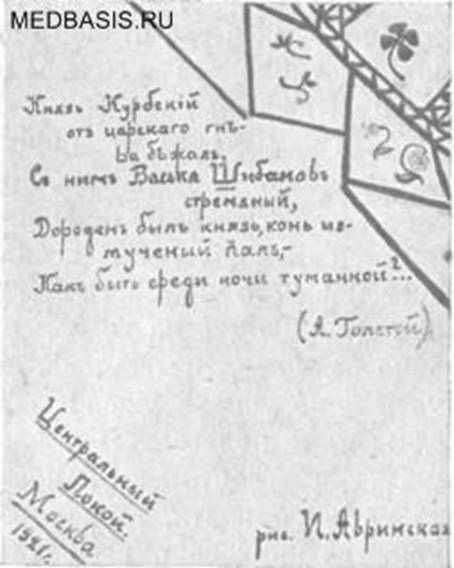 MEDBASIS.RU
Князь Курбскій
отъ царскаго гнѣ-
ва бѣжалъ,
Съ нимъ Васька Шибановъ
стремяный,
Дороденъ былъ князь, конь из-
мученый палъ,-
Какъ быть среди ночи туманной?...
(А. Толстой).
Центральный
Покой.
Москва
1921г.
рис. И. Авринская